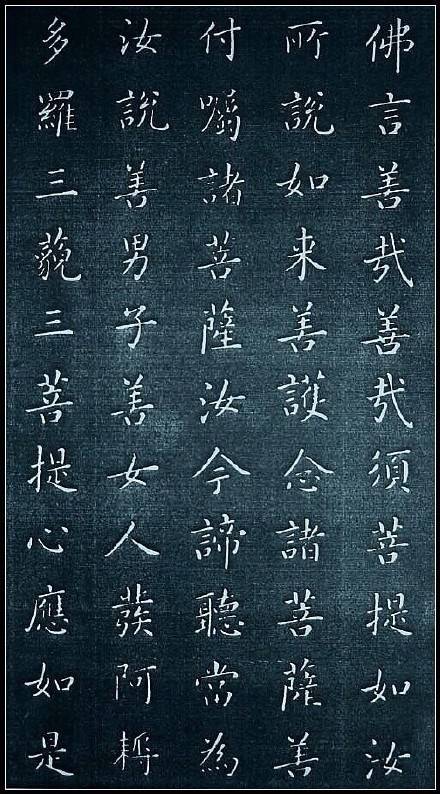 佛言善哉善哉須菩提如汝
所說如来善護念諸菩薩善
付囑諸菩薩汝今諦聽當為
汝說善男子善女人發阿耨
多羅三藐三菩提心應如是